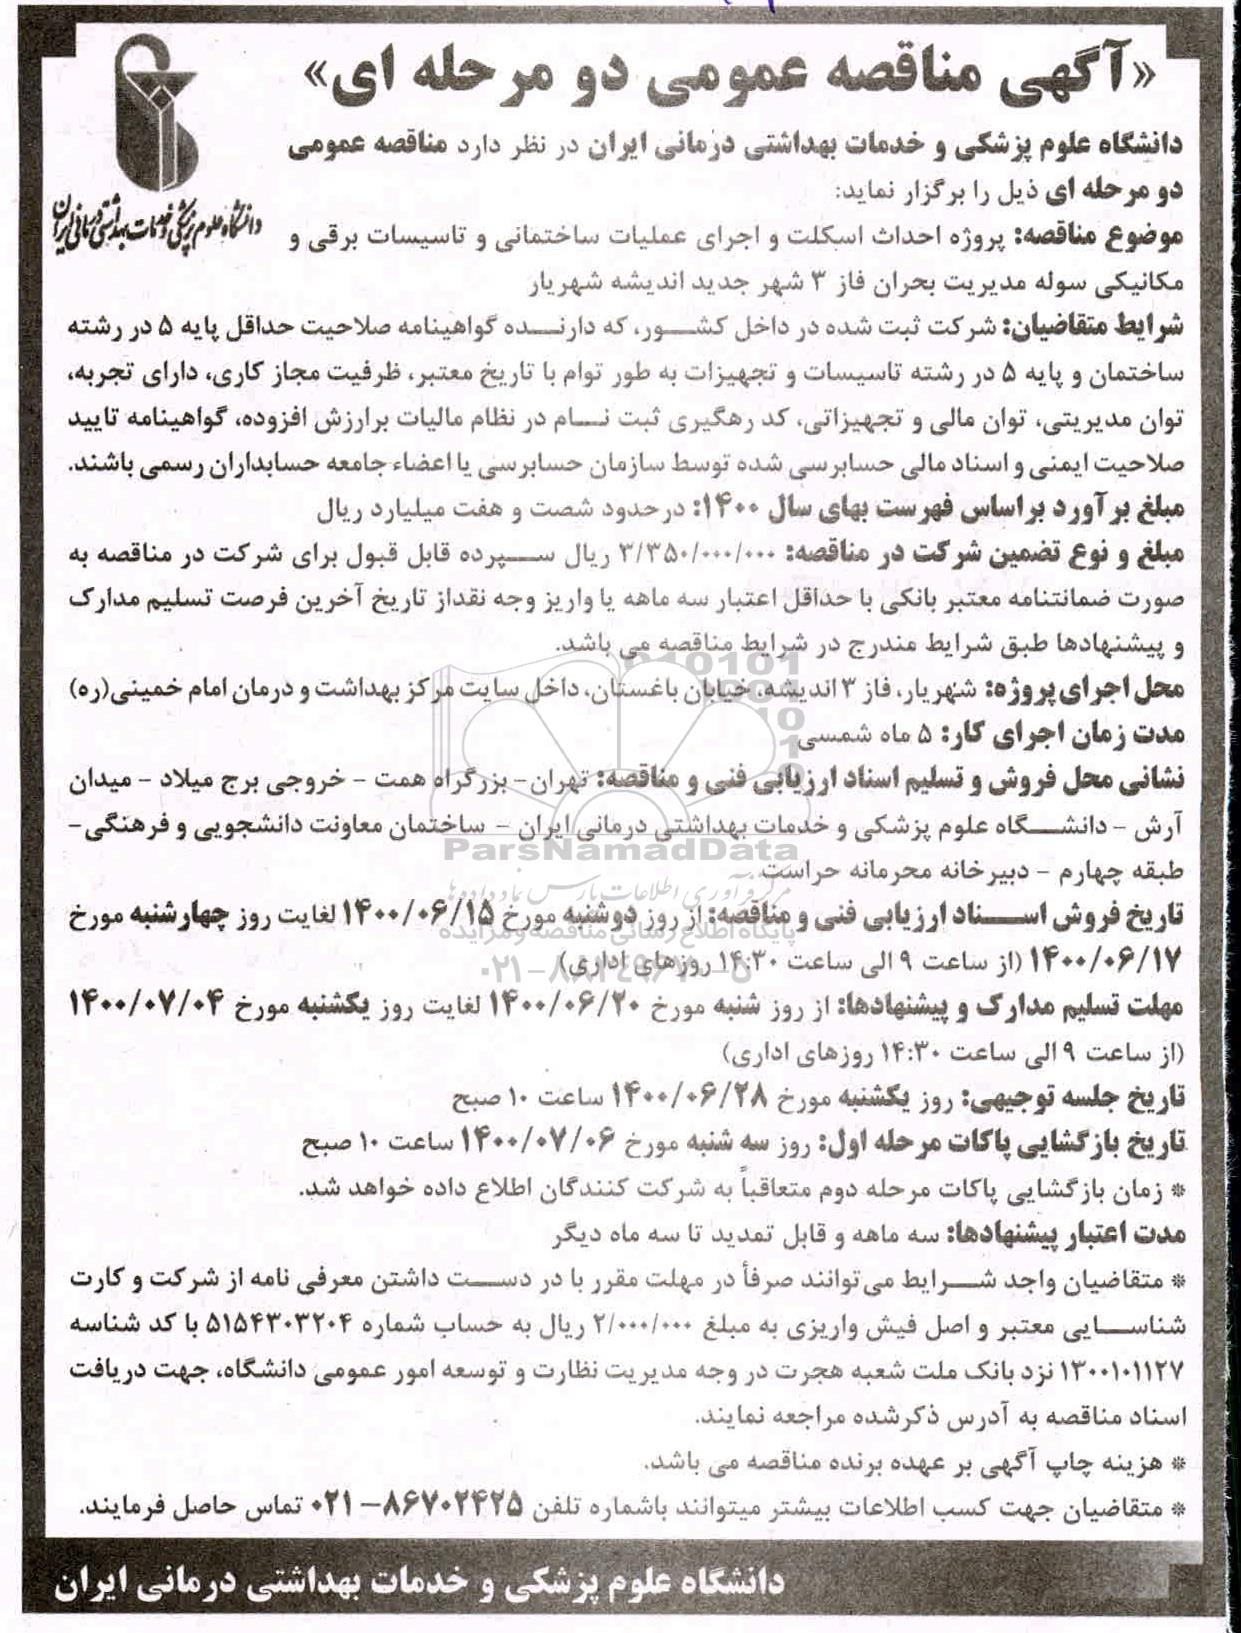 «آگهی مناقصه عمومی دو مرحله ای»
دانشگاه علوم پزشکی و خدمات بهداشتی درمانی ایران
دانشگاه علوم پزشکی و خدمات بهداشتی درمانی ایران در نظر دارد مناقصه عمومی
دو مرحله ای ذیل را برگزار نماید:
موضوع مناقصه: پروژه احداث اسکلت و اجرای عملیات ساختمانی و تاسیسات برقی و
مکانیکی سوله مدیریت بحران فاز ۳ شهر جدید اندیشه شهریار
شرایط متقاضیان: شرکت ثبت شده در داخل کشور، که دارنده گواهینامه صلاحیت حداقل پایه ۵ در رشته
ساختمان و پایه ۵ در رشته تاسیسات و تجهیزات به طور توام با تاریخ معتبر، ظرفیت مجاز کاری، دارای تجربه،
توان مدیریتی، توان مالی و تجهیزاتی، کد رهگیری ثبت نام در نظام مالیات برارزش افزوده، گواهینامه تایید
صلاحیت ایمنی و اسناد مالی حسابرسی شده توسط سازمان حسابرسی یا اعضاء جامعه حسابداران رسمی باشند.
مبلغ برآورد براساس فهرست بهای سال ۱۴۰۰: درحدود شصت و هفت میلیارد ریال
مبلغ و نوع تضمین شرکت در مناقصه: ۳/۳۵۰/۰۰۰/۰۰۰ ریال سپرده قابل قبول برای شرکت در مناقصه به
صورت ضمانتنامه معتبر بانکی با حداقل اعتبار سه ماهه یا واریز وجه نقداز تاریخ آخرین فرصت تسلیم مدارک
و پیشنهادها طبق شرایط مندرج در شرایط مناقصه می باشد.
محل اجرای پروژه: شهریار، فاز ۳ اندیشه، خیابان باغستان، داخل سایت مرکز بهداشت و درمان امام خمینی(ره)
مدت زمان اجرای کار: ۵ ماه شمسی
نشانی محل فروش و تسلیم اسناد ارزیابی فنی و مناقصه: تهران- بزرگراه همت - خروجی برج میلاد - میدان
آرش - دانشگاه علوم پزشکی و خدمات بهداشتی درمانی ایران - ساختمان معاونت دانشجویی و فرهنگی-
طبقه چهارم - دبیرخانه محرمانه حراست
ParsNamadData
مرکز فرآوری اطلاعات پارس نماد داده‌ها
تاریخ فروش اسناد ارزیابی فنی و مناقصه: از روز دوشنبه مورخ ۱۴۰۰/۰۶/۱۵ لغایت روز چهارشنبه مورخ
پایگاه اطلاع رسانی مناقصه و مزایده
۱۴۰۰/۰۶/۱۷ (از ساعت ۹ الی ساعت ۱۴:۳۰ روزهای اداری)
مهلت تسلیم مدارک و پیشنهادها: از روز شنبه مورخ ۱۴۰۰/۰۶/۲۰ لغایت روز یکشنبه مورخ ۱۴۰۰/۰۷/۰۴
(از ساعت ۹ الی ساعت ۱۴:۳۰ روزهای اداری)
تاریخ جلسه توجیهی: روز یکشنبه مورخ ۱۴۰۰/۰۶/۲۸ ساعت ۱۰ صبح
تاریخ بازگشایی پاکات مرحله اول: روز سه شنبه مورخ ۱۴۰۰/۰۷/۰۶ ساعت ۱۰ صبح
* زمان بازگشایی پاکات مرحله دوم متعاقباً به شرکت کنندگان اطلاع داده خواهد شد.
مدت اعتبار پیشنهادها: سه ماهه و قابل تمدید تا سه ماه دیگر
* متقاضیان واجد شرایط می‌توانند صرفاً در مهلت مقرر با در دست داشتن معرفی نامه از شرکت و کارت
شناسایی معتبر و اصل فیش واریزی به مبلغ ۲/۰۰۰/۰۰۰ ریال به حساب شماره ۵۱۵۴۳۰۳۲۰۴ با کد شناسه
۱۳۰۰۱۰۱۱۲۷ نزد بانک ملت شعبه هجرت در وجه مدیریت نظارت و توسعه امور عمومی دانشگاه، جهت دریافت
اسناد مناقصه به آدرس ذکرشده مراجعه نمایند.
* هزینه چاپ آگهی بر عهده برنده مناقصه می باشد.
* متقاضیان جهت کسب اطلاعات بیشتر میتوانند باشماره تلفن ۸۶۷۰۲۴۲۵-۰۲۱ تماس حاصل فرمایند.
دانشگاه علوم پزشکی و خدمات بهداشتی درمانی ایران